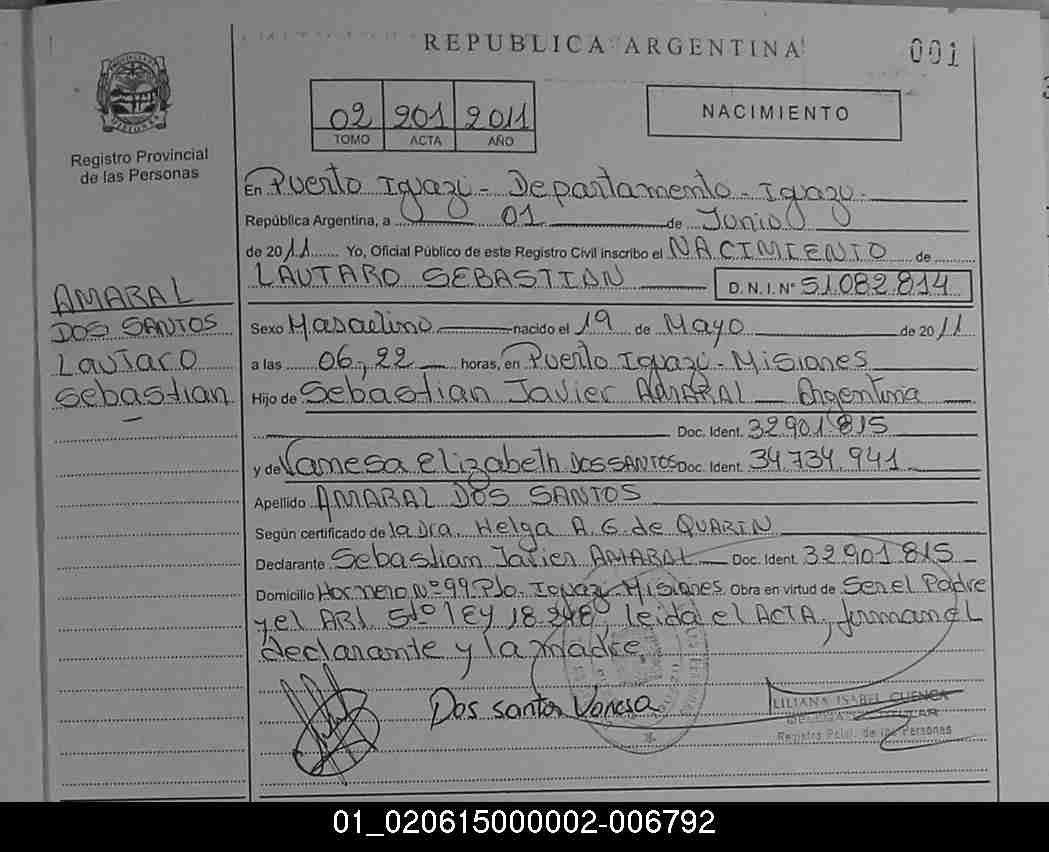 REPUBLICA ARGENTINA
001
02 201 2011
TOMO ACTA AÑO
NACIMIENTO
Registro Provincial
de las Personas
En Puerto Iguazú - Departamento - Iguazú -
República Argentina, a 01 de Junio
de 2011 Yo, Oficial Público de este Registro Civil inscribo el NACIMIENTO de
LAUTARO SEBASTIAN D.N.I. N° 51.082.814
AMARAL
DOS SANTOS
Lautaro
Sebastian
Sexo Masculino nacido el 19 de Mayo de 2011
a las 06,22 horas, en Puerto Iguazú - Misiones
Hijo de Sebastian Javier AMARAL Argentina
Doc. Ident. 32.901.815
y de Vanesa Elizabeth DOS SANTOS Doc. Ident. 34.734.941
Apellido AMARAL DOS SANTOS
Según certificado de la Dra. Helga A. G. de QUARIN
Declarante Sebastian Javier AMARAL Doc. Ident. 32.901.815
Domicilio Hornero N° 99 Pto. Iguazú Misiones Obra en virtud de Ser el Padre
y el ART. 5to LEY 18.248, leida el ACTA, firman el
declarante y la madre.
Dos santos Vanesa
LILIANA ISABEL CUENCA
Registro Pcial. de las Personas
01_020615000002-006792